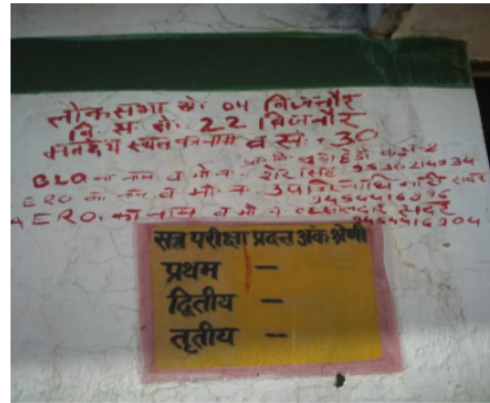 लोकसभा क्षे. 04 बिजनौर
वि. स. क्षे. 22 बिजनौर
मतदेय स्थल का नाम व सं. 30
BLO का नाम व मो. न. शेर सिंह
ERO का नाम व मो. न. उपजिलाधिकारी सदर
9454416896
AERO. का नाम व मो. न. तहसीलदार सदर
सत्र परीक्षा प्रदत्त अंक श्रेणी
प्रथम –
द्वितीय –
तृतीय –